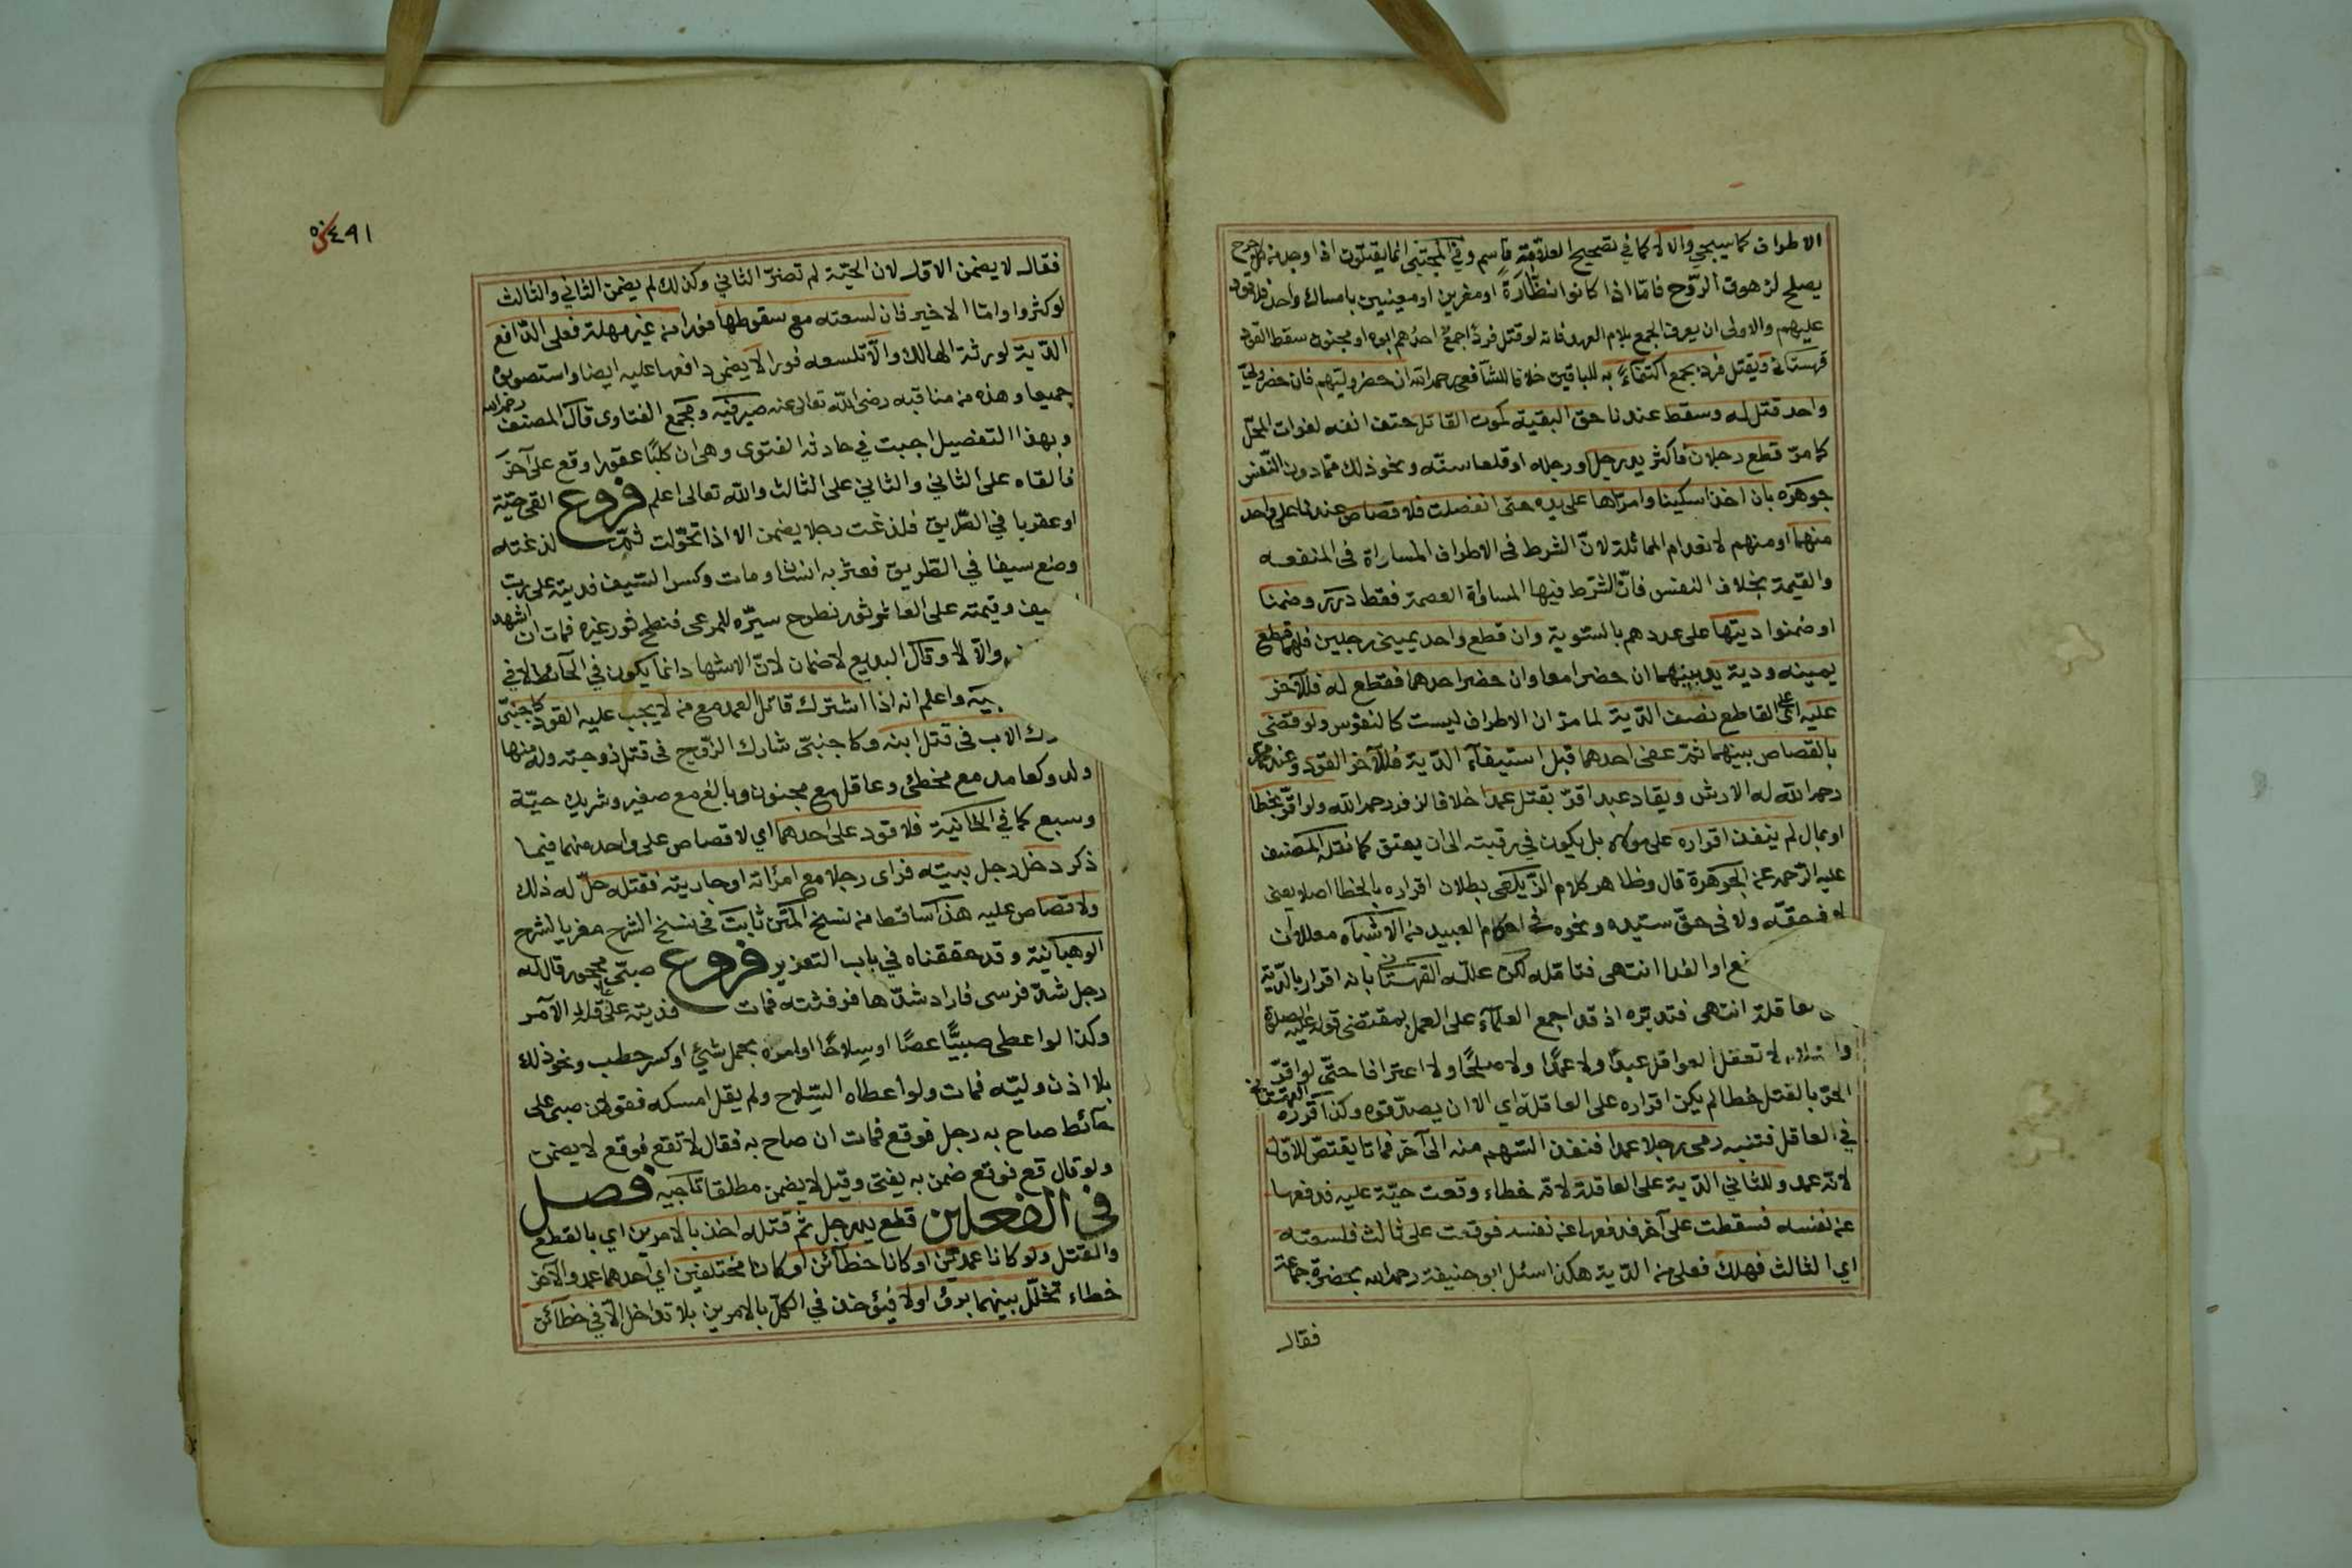 الاطراف كما سيجي والا لا كما في تصحيح العلامة قاسم وفي المجتبى انما يقتلون اذا وجد من كل جرح
يصلح لزهوق الروح فاما اذا كانوا نظارة او مغرين او معينين بامساك واحد فلا قود
عليهم والاولى ان يعرف الجمع بلام العهد فانه لو قتل فرد اجمع احدهم ابوه او مجنون سقط القود
قهستاني ويقتل فرد بجمع اكتفاء به للباقين خلافا للشافعي رحمه الله ان حضر وليهم فان حضر ولي
واحد قتل له وسقط عندنا حق البقية كموت القاتل حتف انفه لفوات المحل
كما مر قطع رجلان فاكثر يد رجل او رجله او قلعا سنه ونحو ذلك مما دون النفس
جوهره بان اخذا سكينا وامراها على يده حتى انفصلت فلا قصاص عندنا على واحد
منهما او منهم لانعدام المماثلة لان الشرط في الاطراف المساواة في المنفعه
والقيمة بخلاف النفس فان الشرط فيها المساواة العصمة فقط درر وضمنا
او ضمنوا ديتها على عددهم بالسوية وان قطع واحد يميني رجلين فلهما قطع
يمينه ودية يد بينهما ان حضرا معا وان حضر احدهما فقطع له فللآخر
عليه اي على القاطع نصف الدية لما مر ان الاطراف ليست كالنفوس ولو قضي
بالقصاص بينهما ثم عفى احدهما قبل استيفآء الدية فللآخر القود وعند محمد
رحمه الله له الارش ويقاد عبد اقر بقتل عمدا خلافا لزفر رحمه الله ولو اقر بخطا
او بمال لم ينفذ اقراره على مولاه بل يكون في رقبته الى ان يعتق كما نقله المصنف
عليه الرحمه عن الجوهرة قال وظاهر كلام الزيلعي بطلان اقراره بالخطا اصلا يعني
لا في حقه ولا في حق سيده ونحوه في احكام العبيد من الاشباه معللا ان
او الفدا انتهى فتامله لكن علله القهستاني بانه اقرار بالدية
عاقلة انتهى فتدبره اذ قد اجمع العلمآء على العمل بمقتضى قوله عليه الصلاة
والسلام لا تعقل العواقل عبدا ولا عمدا ولا صلحا ولا اعترافا حتى لو اقر
الحر بالقتل خطا لم يكن اقراره على العاقلة اي الا ان يصدقوه وكذا قرره القهستاني
في العاقل فتنبه رمى رجلا عمدا فنفذ السهم منه الى آخر فماتا يقتص للاول
لانه عمد وللثاني الدية على العاقلة لانه خطاء وقعت حية عليه فدفعها
عن نفسه فسقطت على آخر فدفعها عن نفسه فوقعت على ثالث فلسعته
اي الثالث فهلك فعلى من الدية هكذا سئل ابو حنيفة رحمه الله بحضرة جماعة
فقال
٤٩١
فقال لا يضمن الاول لان الحية لم تضر الثاني وكذلك لم يضمن الثاني والثالث
لو كثروا واما الاخير فان لسعته مع سقوطها فورا من غير مهلة فعلى الدافع
الدية لورثة الهالك والا تلسعه فورا لا يضمن دافعها عليه ايضا واستصوبوه
جميعا وهذه من مناقبه رضي الله تعالى عنه صيرفيه ومجمع الفتاوى قال المصنف رحمه الله
وبهذا التفصيل اجبت في حادثه الفتوى وهي ان كلبا عقورا وقع على آخر
فالقاه على الثاني والثاني على الثالث والله تعالى اعلم فروع القى حية
او عقربا في الطريق فلدغت رجلا يضمن الا اذا تحولت ثم لدغته
وضع سيفا في الطريق فعثر به انسان ومات وكسر السيف فديته على رب
السيف وقيمته على العاثر ثور نطوح سيره للمرعى فنطح ثور غيره فمات ان اشهد
والا لا وقال البديع لا ضمان لان الاشهاد انما يكون في الحائط لا في
واعلم انه اذا اشترك قاتل العمد مع من لا يجب عليه القود كاجنبي
الاب في قتل ابنه وكاجنبي شارك الزوج في قتل زوجته وله منها
ولد وكعامد مع مخطئ وعاقل مع مجنون وبالغ مع صغير وشريك حية
وسبع كما في الخانية فلا قود على احدهما اي لا قصاص على واحد منهما فيما
ذكر دخل رجل بيته فراى رجلا مع امراته او جاريته فقتله حل له ذلك
ولا قصاص عليه هذا ساقط من نسخ المتن ثابت في نسخ الشرح معزيا لشرح
الوهبانية وقد حققناه في باب التعزير فروع صبي محجور قال له
رجل شد فرسي فاراد شدها فرفسته فمات فديته على عاقلة الآمر
وكذا لو اعطى صبيا عصا او سلاحا او امره بحمل شئ او كسر حطب ونحو ذلك
بلا اذن وليه فمات ولو اعطاه السلاح ولم يقل امسكه فقولان صبي على
حائط صاح به رجل فوقع فمات ان صاح به فقال لا تقع فوقع لا يضمن
ولو قال قع فوقع ضمن به يفتى وقيل لا يضمن مطلقا تاجيه فصل
في الفعلين قطع يد رجل ثم قتله اخذ بالامرين اي بالقطع
والقتل ولو كانا عمدين او كانا خطائن او كانا مختلفين اي احدهما عمد والآخر
خطاء تخلل بينهما برؤ اولا فيؤخذ في الكل بالامرين بلا تداخل الا في خطائن